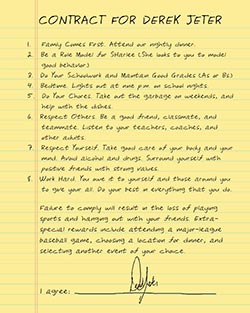 CONTRACT FOR DEREK JETER
1. Family Comes First. Attend our nightly dinner.
2. Be a Role Model for Sharlee (She looks to you to model
good behavior.)
3. Do Your Schoolwork and Maintain Good Grades (As or Bs).
4. Bedtime. Lights out at nine p.m. on school nights.
5. Do Your Chores. Take out the garbage on weekends, and
help with the dishes.
6. Respect Others. Be a good friend, classmate, and
teammate. Listen to your teachers, coaches, and
other adults.
7. Respect Yourself. Take good care of your body and your
mind. Avoid alcohol and drugs. Surround yourself with
positive friends with strong values.
8. Work Hard. You owe it to yourself and those around you
to give your all. Do your best in everything that you do.
Failure to comply will result in the loss of playing
sports and hanging out with your friends. Extra-
special rewards include attending a major-league
baseball game, choosing a location for dinner, and
selecting another event of your choice.
I agree: